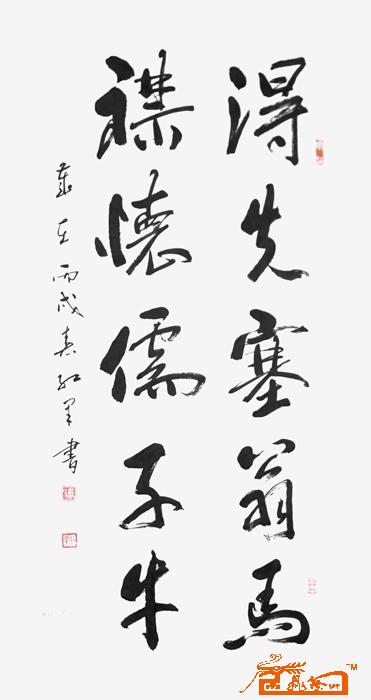 得失塞翁馬
襟懷儒子牛
歲在丙戌春紅軍書